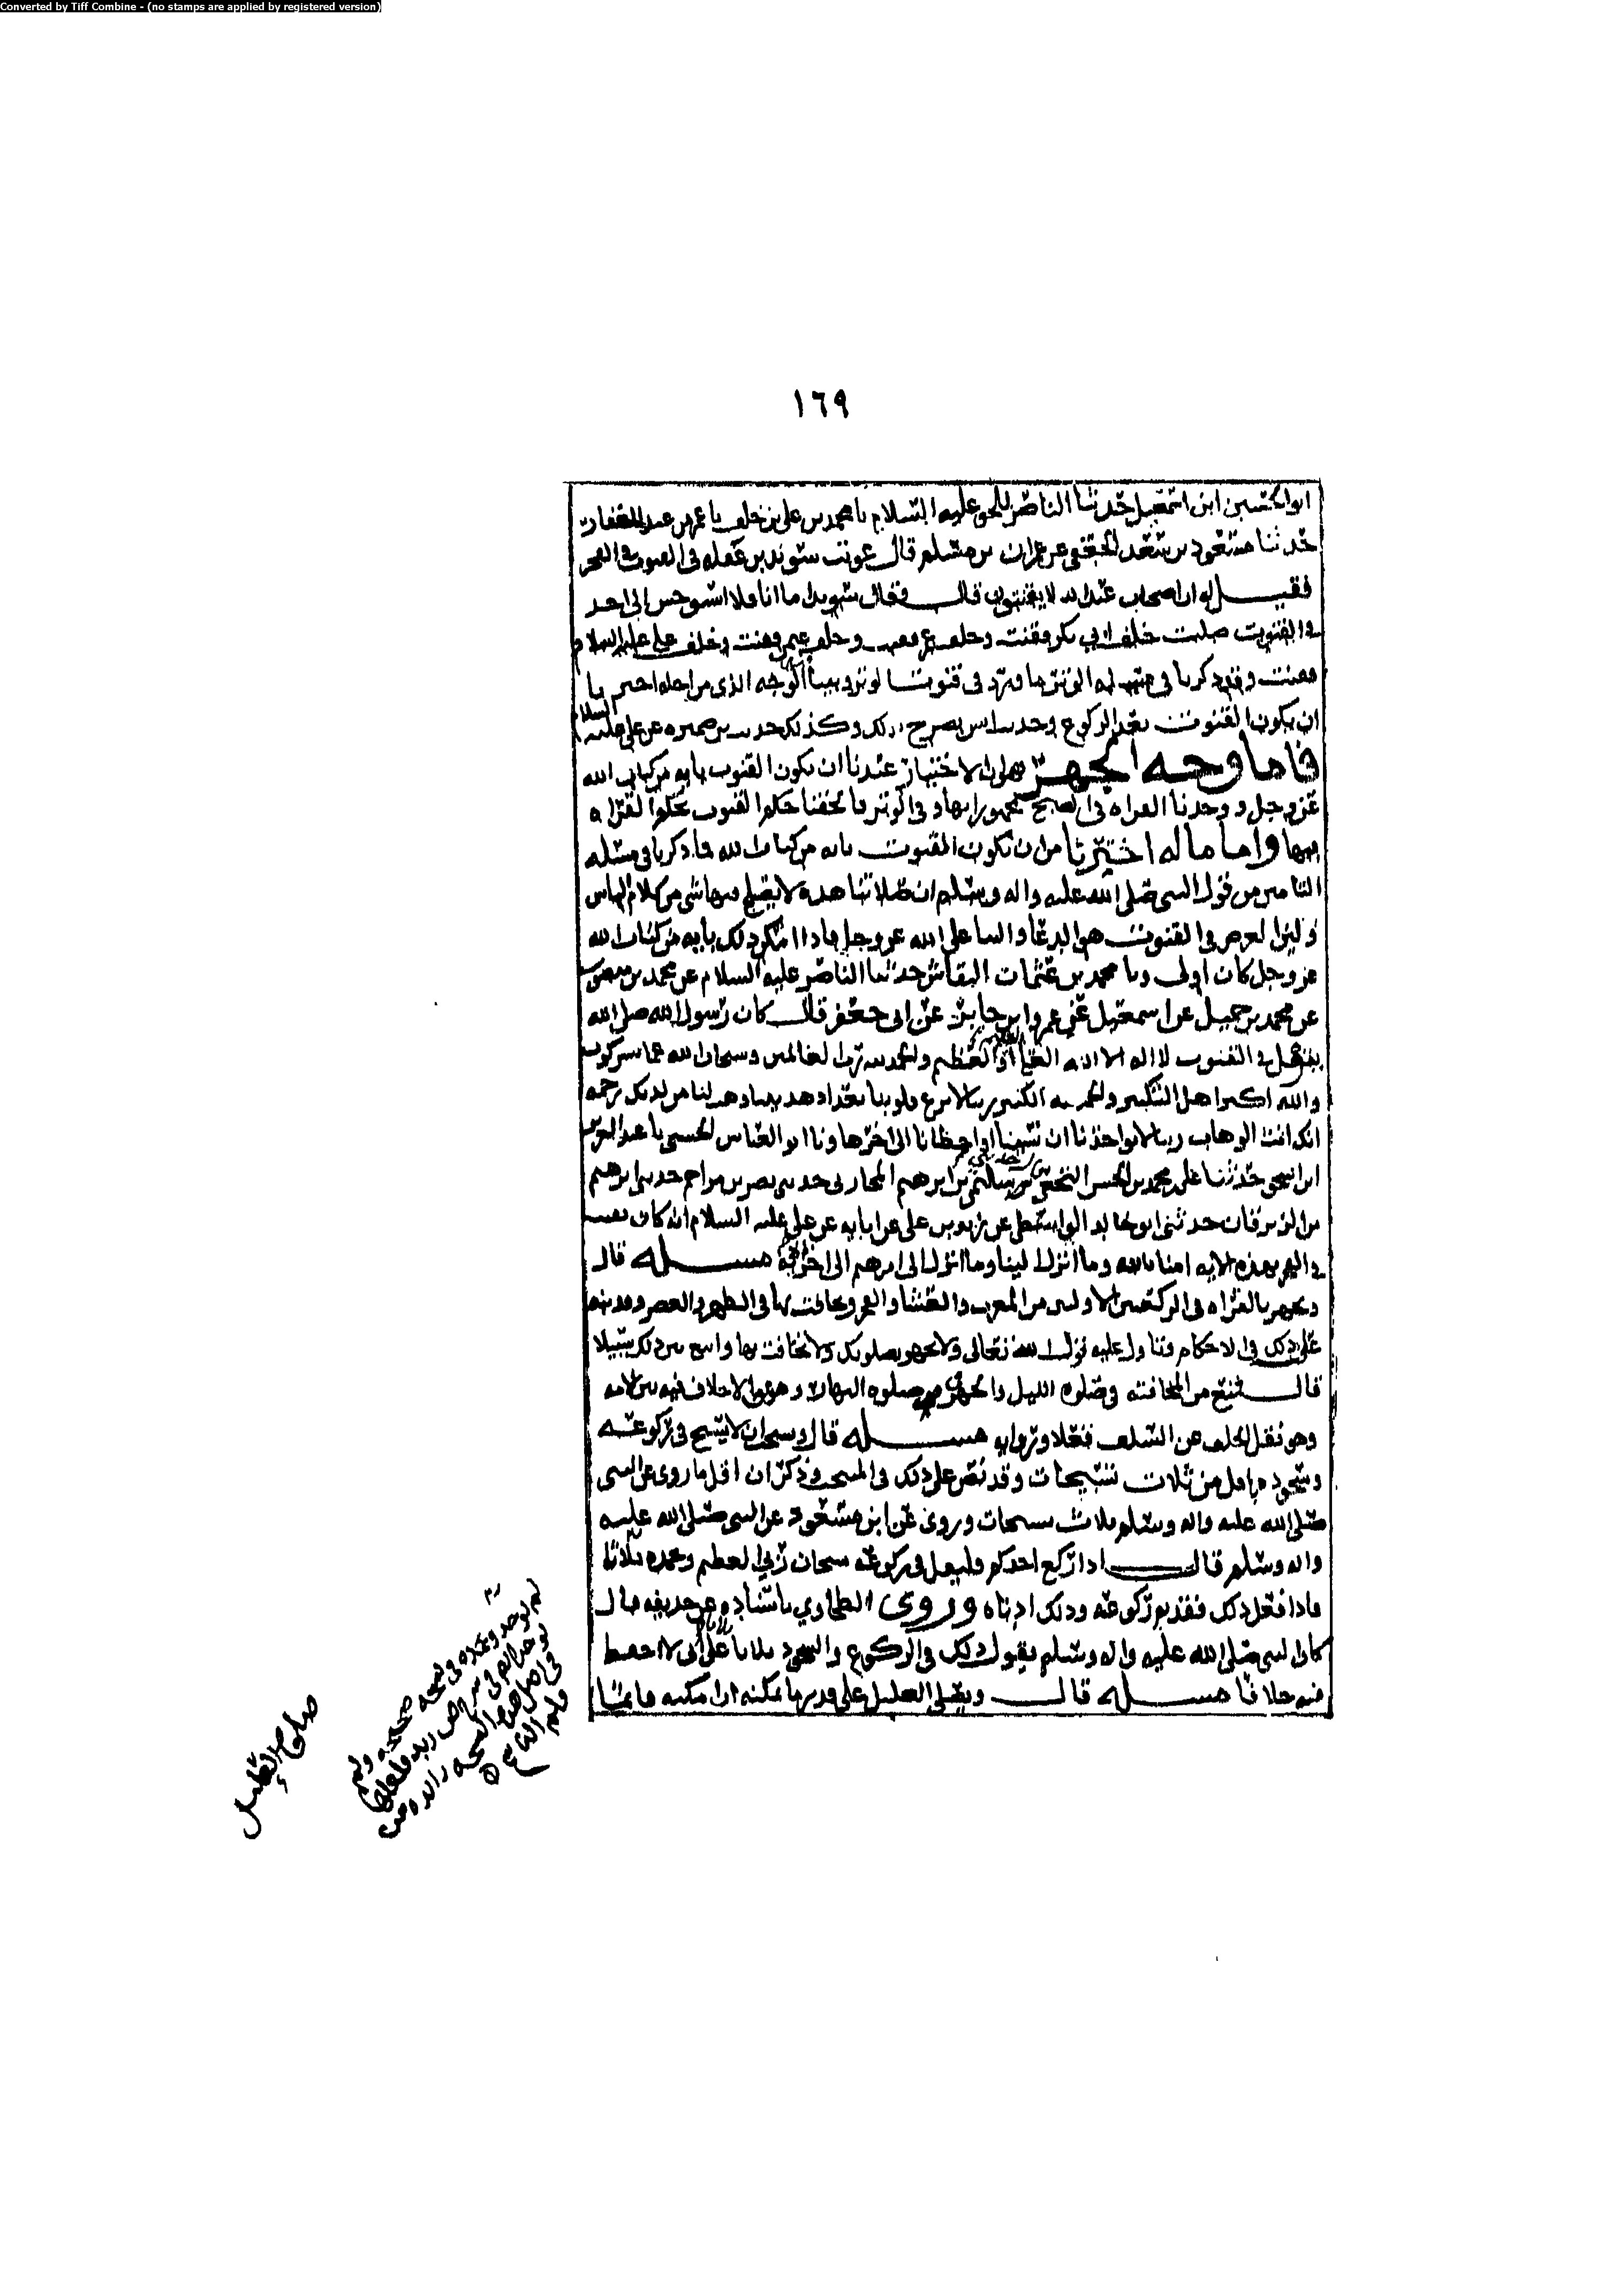 Converted by Tiff Combine - (no stamps are applied by registered version)
١٦٩
ابو الحسين ابن اسمعيل حدثنا الناصر للحق عليه السلام نا محمد بن علي بن خلف نا عمر بن عبد الغفار
حدثنا مسعود بن سعد الجعفي عن عمران بن مسلم قال عوتب سويد بن غفله في القنوت في الفجر
فقيل له ان اصحاب عبد الله لا يقنتون قال فقال سويد اما انا فلا استوحش الى احد
في القنوت صليت خلف ابي بكر فقنت وخلف عمر فقنت وخلف وخلف علي عليه السلام
فقنت وقد ذكرنا في الوتر ما ورد في قنوت الوتر وبينا الوجه الذي من اجله اخترنا
ان يكون القنوت بعد الركوع وحديث انس يصرح بذلك وكذلك حديث بن ضميره عن علي عليه السلام
فاما وجه الجهر فهو ان الاختيار عندنا ان يكون القنوت بايه من كتاب الله
عز وجل ووجدنا القراه في الصبح مجهورا بها وفي الوتر فالحقنا حكم القنوت بحكم القراه
بها واما ما له اخترنا من ان تكون القنوت بايه من كتاب الله فما ذكرنا في مسئله
التامين من قول النبي صلى الله عليه واله وسلم ان صلاتنا هذه لا يصلح فيها شي من كلام الناس
الغرض في القنوت هو الدعا والثنا على الله عز وجل فاذا امكن ذلك بايه من كتاب الله
عز وجل كان اولى ونا محمد بن عثمان النقاش حدثنا الناصر عليه السلام عن محمد بن منصور
عن محمد بن جميل عن اسمعيل عن عمرو ابن جابر عن ابي جعفر قال كان رسول الله صلى الله
يقول في القنوت لا اله الا الله العلي العظيم والحمد لله رب العالمين وسبحان الله عما يشركون
والله اكبر اهل التكبير والحمد لله الكبير ربنا لا تزغ قلوبنا بعد اذ هديتنا وهب لنا من لدنك رحمه
انك انت الوهاب ربنا لا تواخذنا ان نسينا او اخطانا الى اخرها ونا ابو العباس الحسني نا عبد العزيز
ابن اسحق حدثنا علي بن محمد بن الحسن النخعي بن ابرهيم المحاربي حدثني نصر بن مزاحم حدثني ابرهيم
بن الزبرقان حدثني ابو خالد الواسطي عن زيد بن علي عن ابايه عن علي عليه السلام انه كان يقنت
في الفجر بهذه الايه امنا بالله وما انزل الينا وما انزل الى ابرهيم الى اخر الايه مسئله قال
ويجهر بالقراه في الركعتين الاولتين من المغرب والعشا والفجر ويخافت بها في الظهر والعصر
على ذلك في الاحكام وتناول عليه قول الله تعالى ولا تجهر بصلوتك ولا تخافت بها وابتغ بين ذلك سبيلا
قال من المخافته في صلوه الليل والجهر في صلوه النهار وهو مما لا خلاف فيه بين الامه
وهو نقل الخلف عن السلف فعلا وروايه مسئله قال ويستحب ان لا يسبح في ركوعه
وسجوده باقل من ثلاث تسبيحات وقد نص على ذلك في المنتخب وذكر ان اقل ما روى عن النبي
صلى الله عليه واله وسلم ثلاث تسبيحات وروى عن ابن مسعود عن النبي صلى الله عليه
واله وسلم قال اذا ركع احدكم فليقل في ركوعه سبحان ربي العظيم وبحمده ثلاثا
فاذا فعل ذلك فقد تم ركوعه وذلك ادناه وروى الطحاوي باسناده عن حذيفه قال
كان النبي صلى الله عليه واله وسلم يقول ذلك في الركوع والسجود ثلاثا على اني لا احفظ
فيه خلافا مسئله قال ويصلي العليل على قدر ما يمكنه ان امكنه قائما
لم توجد وبحمده في نسخه صحيحه ولم
توجد الا في
في اصل هذه النسخه زائده من
قلم الناسخ
صلوة العليل